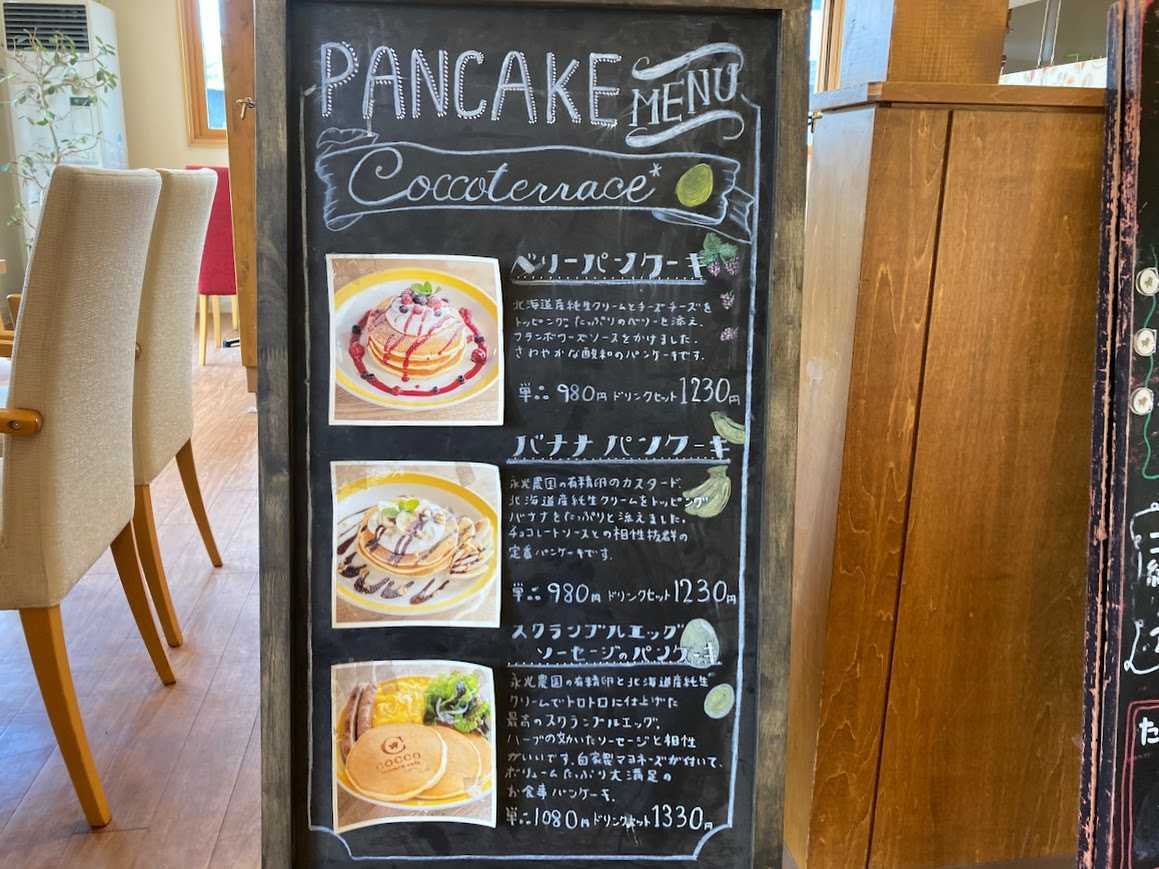 PANCAKE MENU
Coccoterrace*
ベリーパンケーキ
北海道産純生クリームとチーズチーズを
トッピング。たっぷりのベリーを添え、
フランボワーズソースをかけました。
さわやかな酸味のパンケーキです。
単品 980円 ドリンクセット 1230円
バナナパンケーキ
永光農園の有精卵のカスタード、
北海道産純生クリームをトッピング
バナナをたっぷりと添えました。
チョコレートソースとの相性抜群の
定番パンケーキです。
単品 980円 ドリンクセット 1230円
スクランブルエッグ
ソーセージのパンケーキ
永光農園の有精卵と北海道産純生
クリームでトロトロに仕上げた
最高のスクランブルエッグ。
ハーブの効いたソーセージと相性
がいいです。自家製マヨネーズが付いて、
ボリュームたっぷり大満足の
お食事パンケーキ。
単品 1080円 ドリンクセット 1330円
COCCO
た